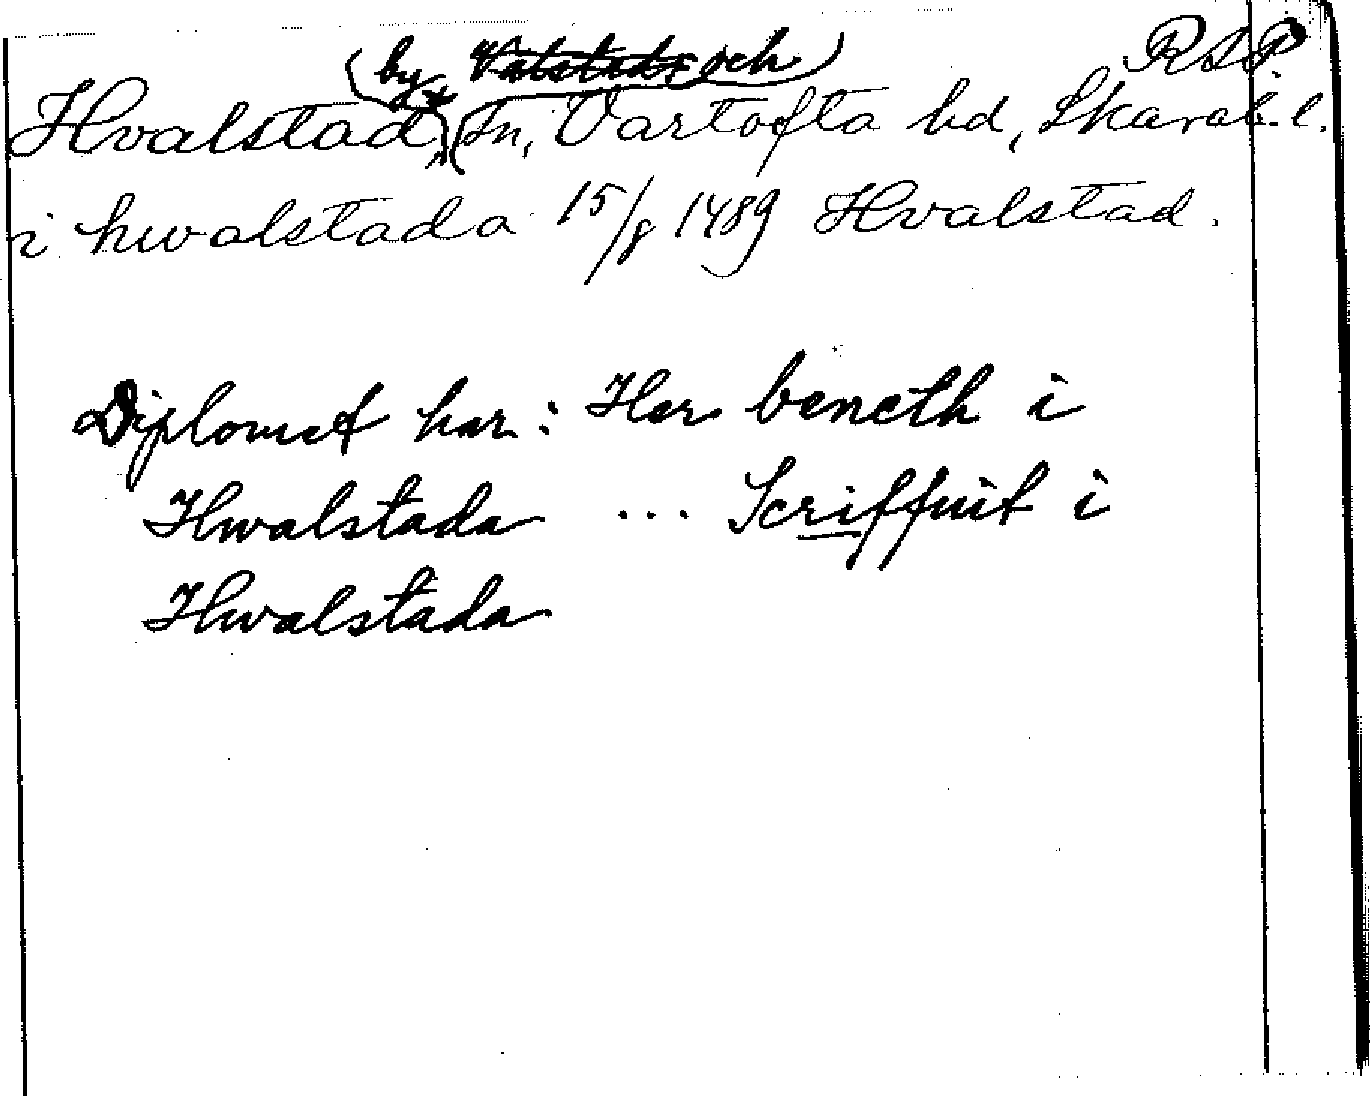 RAP
(by, Valstads och)
Hvalstad, (sn, Vartofta hd, Skarab. l.
i hwalstada 15/8 1489 Hvalstad.
Diplomet har: Her beneth i
Hwalstada ... Scriffuit i
Hwalstada